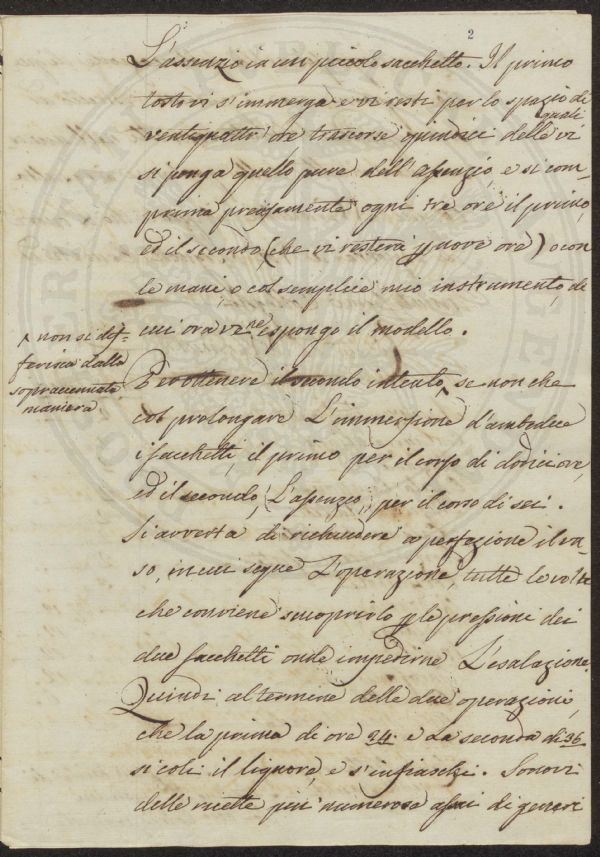 2
L'assenzio in un piccolo sacchetto. Il primo
tosto vi s'immerga e vi resti per lo spazio di
ventiquattr' ore, trascorse quindici delle quali vi
si ponga quello pure dell'assenzio, e si com-
prima precisamente ogni tre ore il primo,
ed il secondo (che vi resterà p nove ore) o con
le mani, o col semplice mio instrumento, di
cui ora vene espongo il modello.
Per ottenere il secondo intento, se non che
^ non si dif-
ferisca dalla
sopraccennata
maniera
col prolungare L'immersione d'ambedue
i sacchetti, il primo per il corso di dodici ore,
ed il secondo, (L'assenzio), per il corso di sei.
Si avverta di richiudere a perfezione il va-
so, in cui segue L'operazione, tutte le volte
che conviene scuoprirlo p le pressioni dei
due sacchetti onde impedirne L'esalazione.
Quindi al termine delle due operazioni,
che la prima di ore 24. e La seconda di 36
si coli il liquore, e s'infiaschi. Sonovi
delle ricette più numerose assai di generi